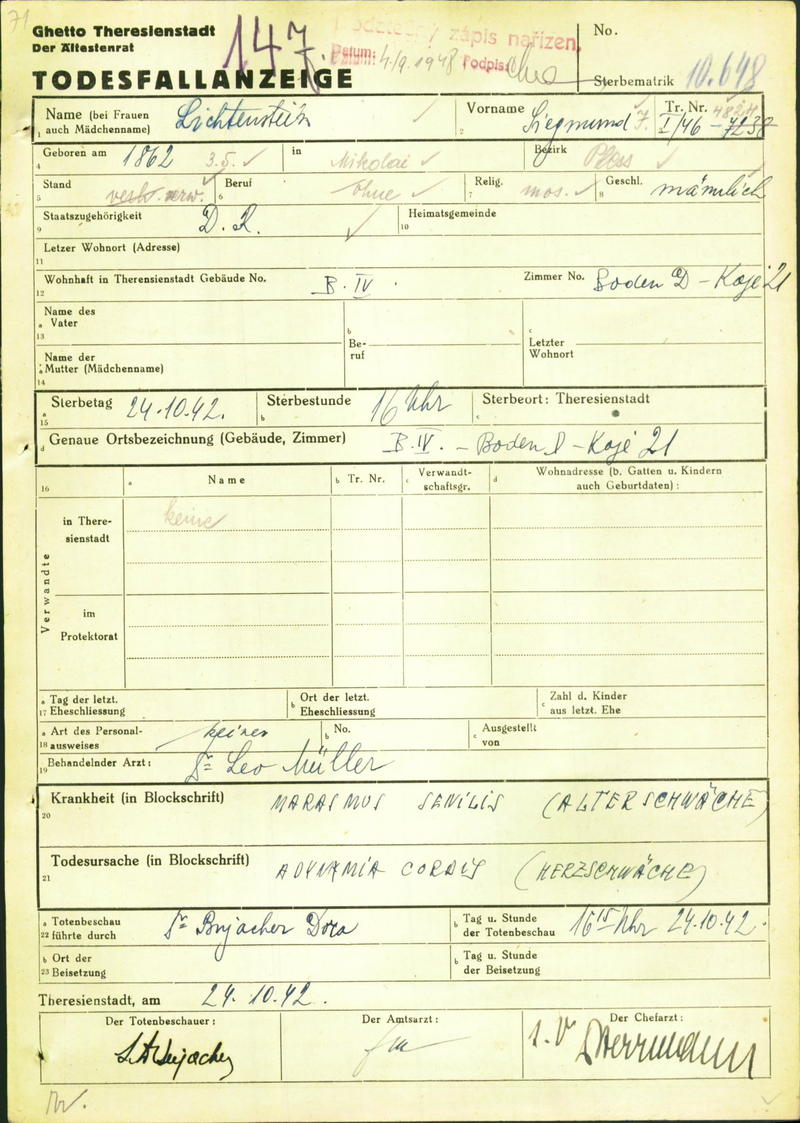 71
Ghetto Theresienstadt
Der Ältestenrat
TODESFALLANZEIGE
147.
zápis nařízen
Datum: 4/9 1948 Podpis:
No.
Sterbematrik 10.648
Name (bei Frauen auch Mädchenname) Lichtenstein
1
Vorname Siegmund
2
Tr. Nr. I/46 - 7238
Geboren am 1862 3.5. in Mikolai Bezirk Pless
4
Stand verw. Beruf ohne Relig. mos. Geschl. männlich
5 6 7 8
Staatszugehörigkeit D.R. Heimatsgemeinde
9 10
Letzer Wohnort (Adresse)
11
Wohnhaft in Theresienstadt Gebäude No. B.IV. Zimmer No. Boden D - Koje 21
12
Name des Vater
a 13
b Beruf
c Letzter Wohnort
Name der Mutter (Mädchenname)
14
a 15 Sterbetag 24.10.42. b Sterbestunde 16 Uhr c Sterbeort: Theresienstadt
d Genaue Ortsbezeichnung (Gebäude, Zimmer) B.IV. - Boden D - Koje 21
16 a Name b Tr. Nr. c Verwandtschaftsgr. d Wohnadresse (b. Gatten u. Kindern auch Geburtdaten):
Verwandte
in Theresienstadt keine
im Protektorat
a 17 Tag der letzt. Eheschliessung b Ort der letzt. Eheschliessung c Zahl d. Kinder aus letzt. Ehe
a 18 Art des Personalausweises keiner b No. c Ausgestellt von
19 Behandelnder Arzt: Dr Leo Müller
Krankheit (in Blockschrift) MARASMUS SENILIS (ALTERSCHWÄCHE)
20
Todesursache (in Blockschrift) ADYNAMIA CORDIS (HERZSCHWÄCHE)
21
a 22 Totenbeschau führte durch Dr Dora b Tag u. Stunde der Totenbeschau 16 15 Uhr 24.10.42.
b 23 Ort der Beisetzung b Tag u. Stunde der Beisetzung
Theresienstadt, am 24.10.42.
Der Totenbeschauer: Der Amtsarzt: Der Chefarzt: